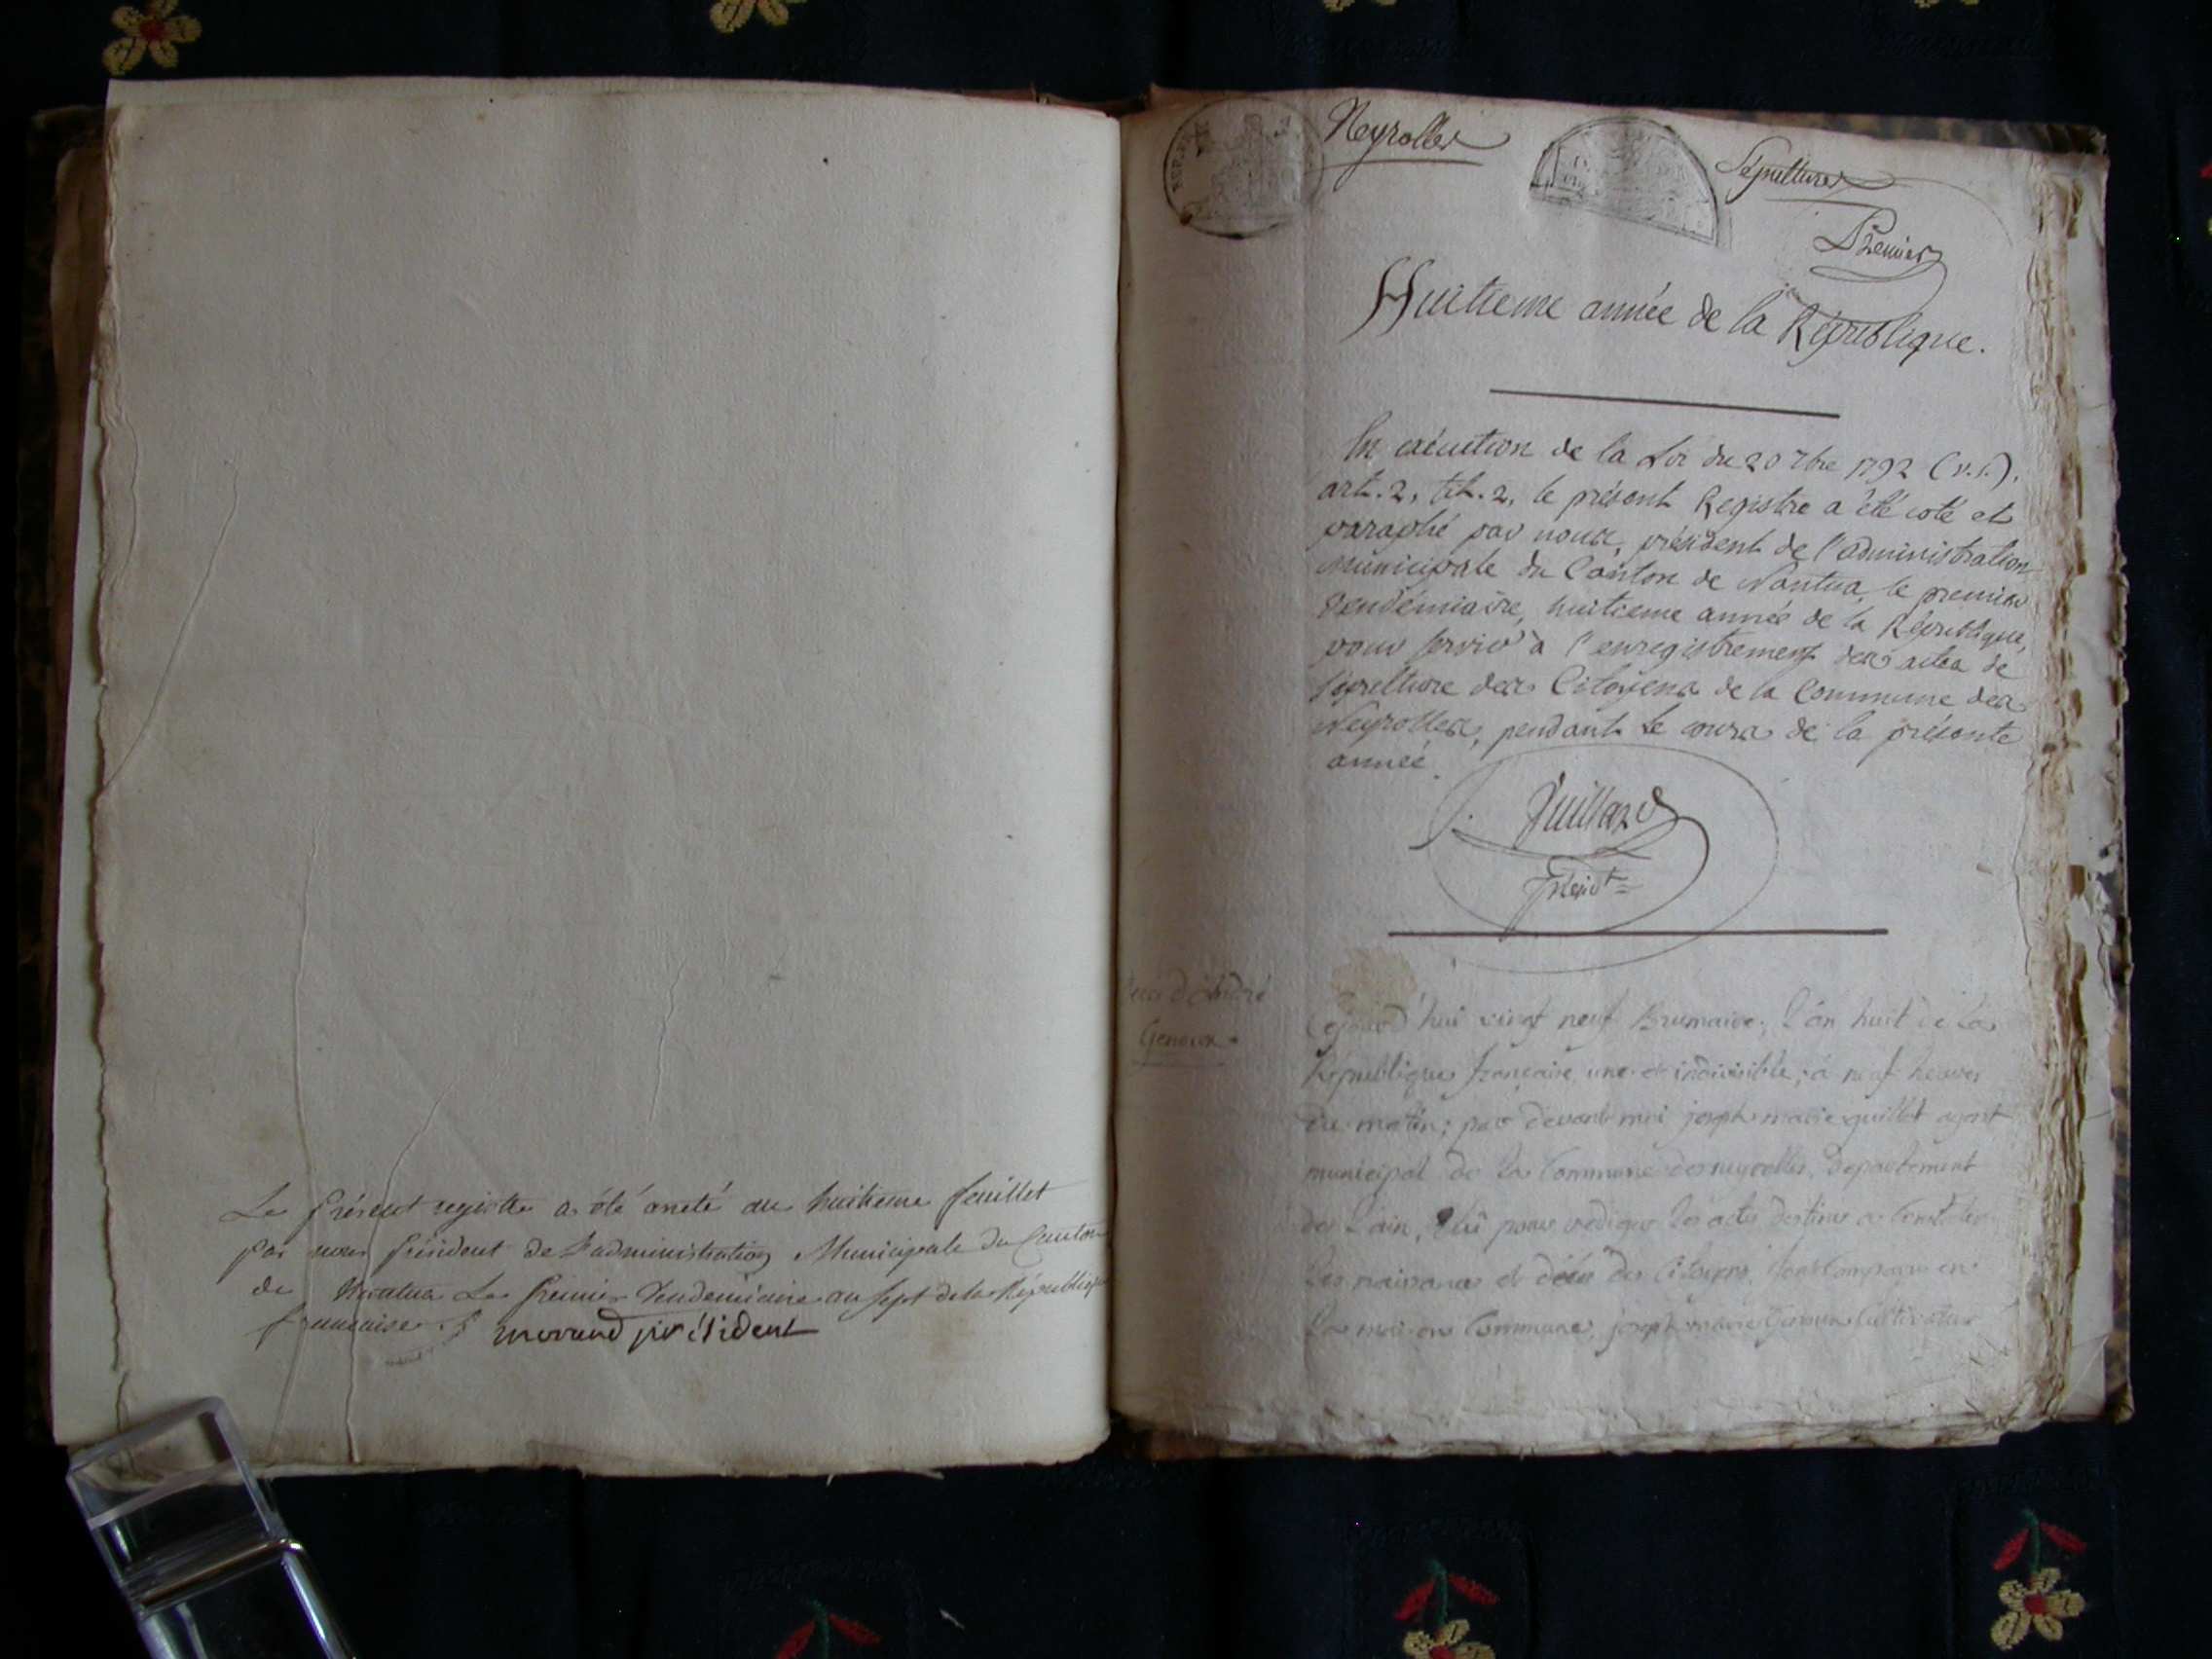 Le présent registre a été areté au huitieme feuillet
par nous président de l'administration Municipale du Canton
de Nantua Le Premier Vendemiaire an sept de la République
francaise. morand président
REP. FRA
Neyrolles
Sépultures
Premier
Huitieme année de la République.
En exécution de la Loi du 20 7bre 1792 (v.s.).
art. 2, tit. 2, le présent Registre a été coté et
paraphé par nous, président de l'administration
municipale du Canton de Nantua, le premier
vendémiaire, huitieme année de la République,
pour servir à l'enregistrement des actes de
sépulture des Citoyens de la Commune des
Neyrolles, pendant le cours de la présente
année.
Juillard
présidt
d'André
Genoux
Cejourd'hui vingt neuf Brumaire, l'an huit de la
République francaise une et indivisible, à neuf heures
du matin; par devant moi joseph marie guillot agent
municipal de la Commune des neyrolles, Departement
de L'ain, élû pour rediger les actes destinés a Constater
les naissances et décès des Citoyens, sont Comparus en
la maison Commune, joseph marie Genoux Cultivateur